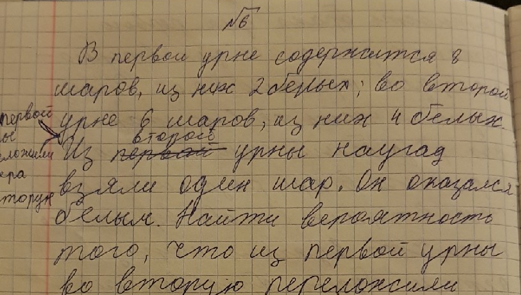 №6
В первой урне содержится 8
шаров, из них 2 белых; во второй
урне 6 шаров, из них 4 белых.
второй
Из первой урны наугад
взяли один шар. Он оказался
белым. Найти вероятность
того, что из первой урны
во вторую переложили
первой
ы
ложили
ара
вторую